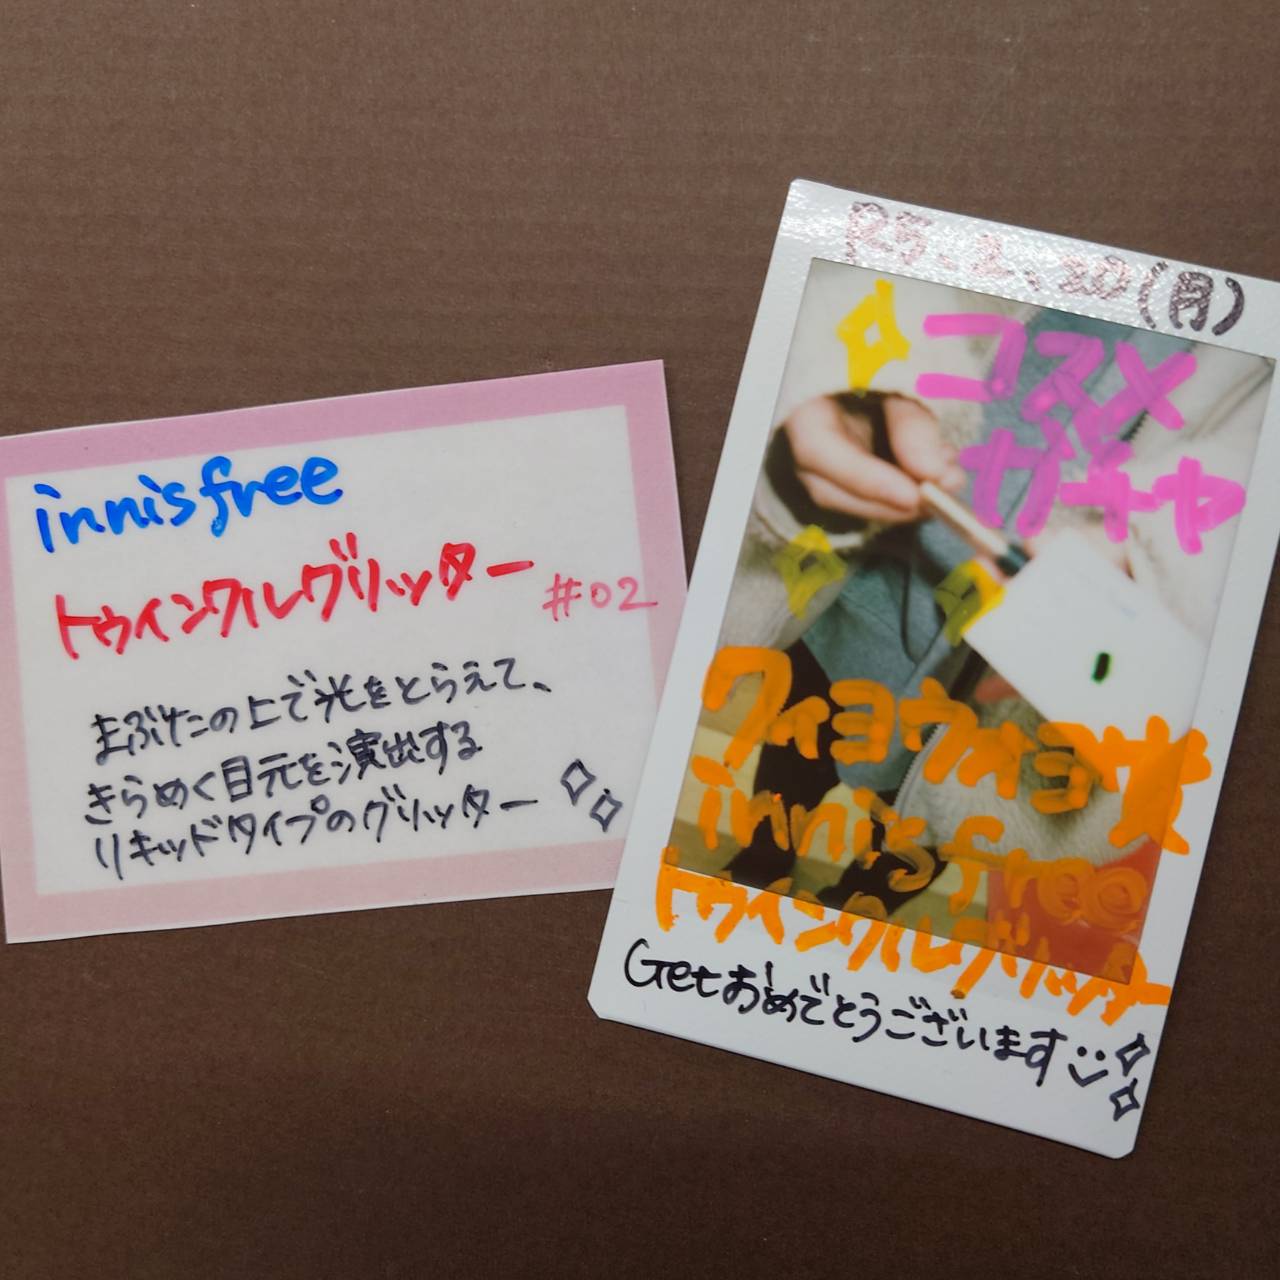 innisfree
トゥインクルグリッター #02
まぶたの上で光をとらえて、
きらめく目元を演出する
リキッドタイプのグリッター
R5.2.20(月)
コスメ
ガチャ
ウィヨウィヨ賞
innisfree
トゥインクルグリッター
Getおめでとうございます